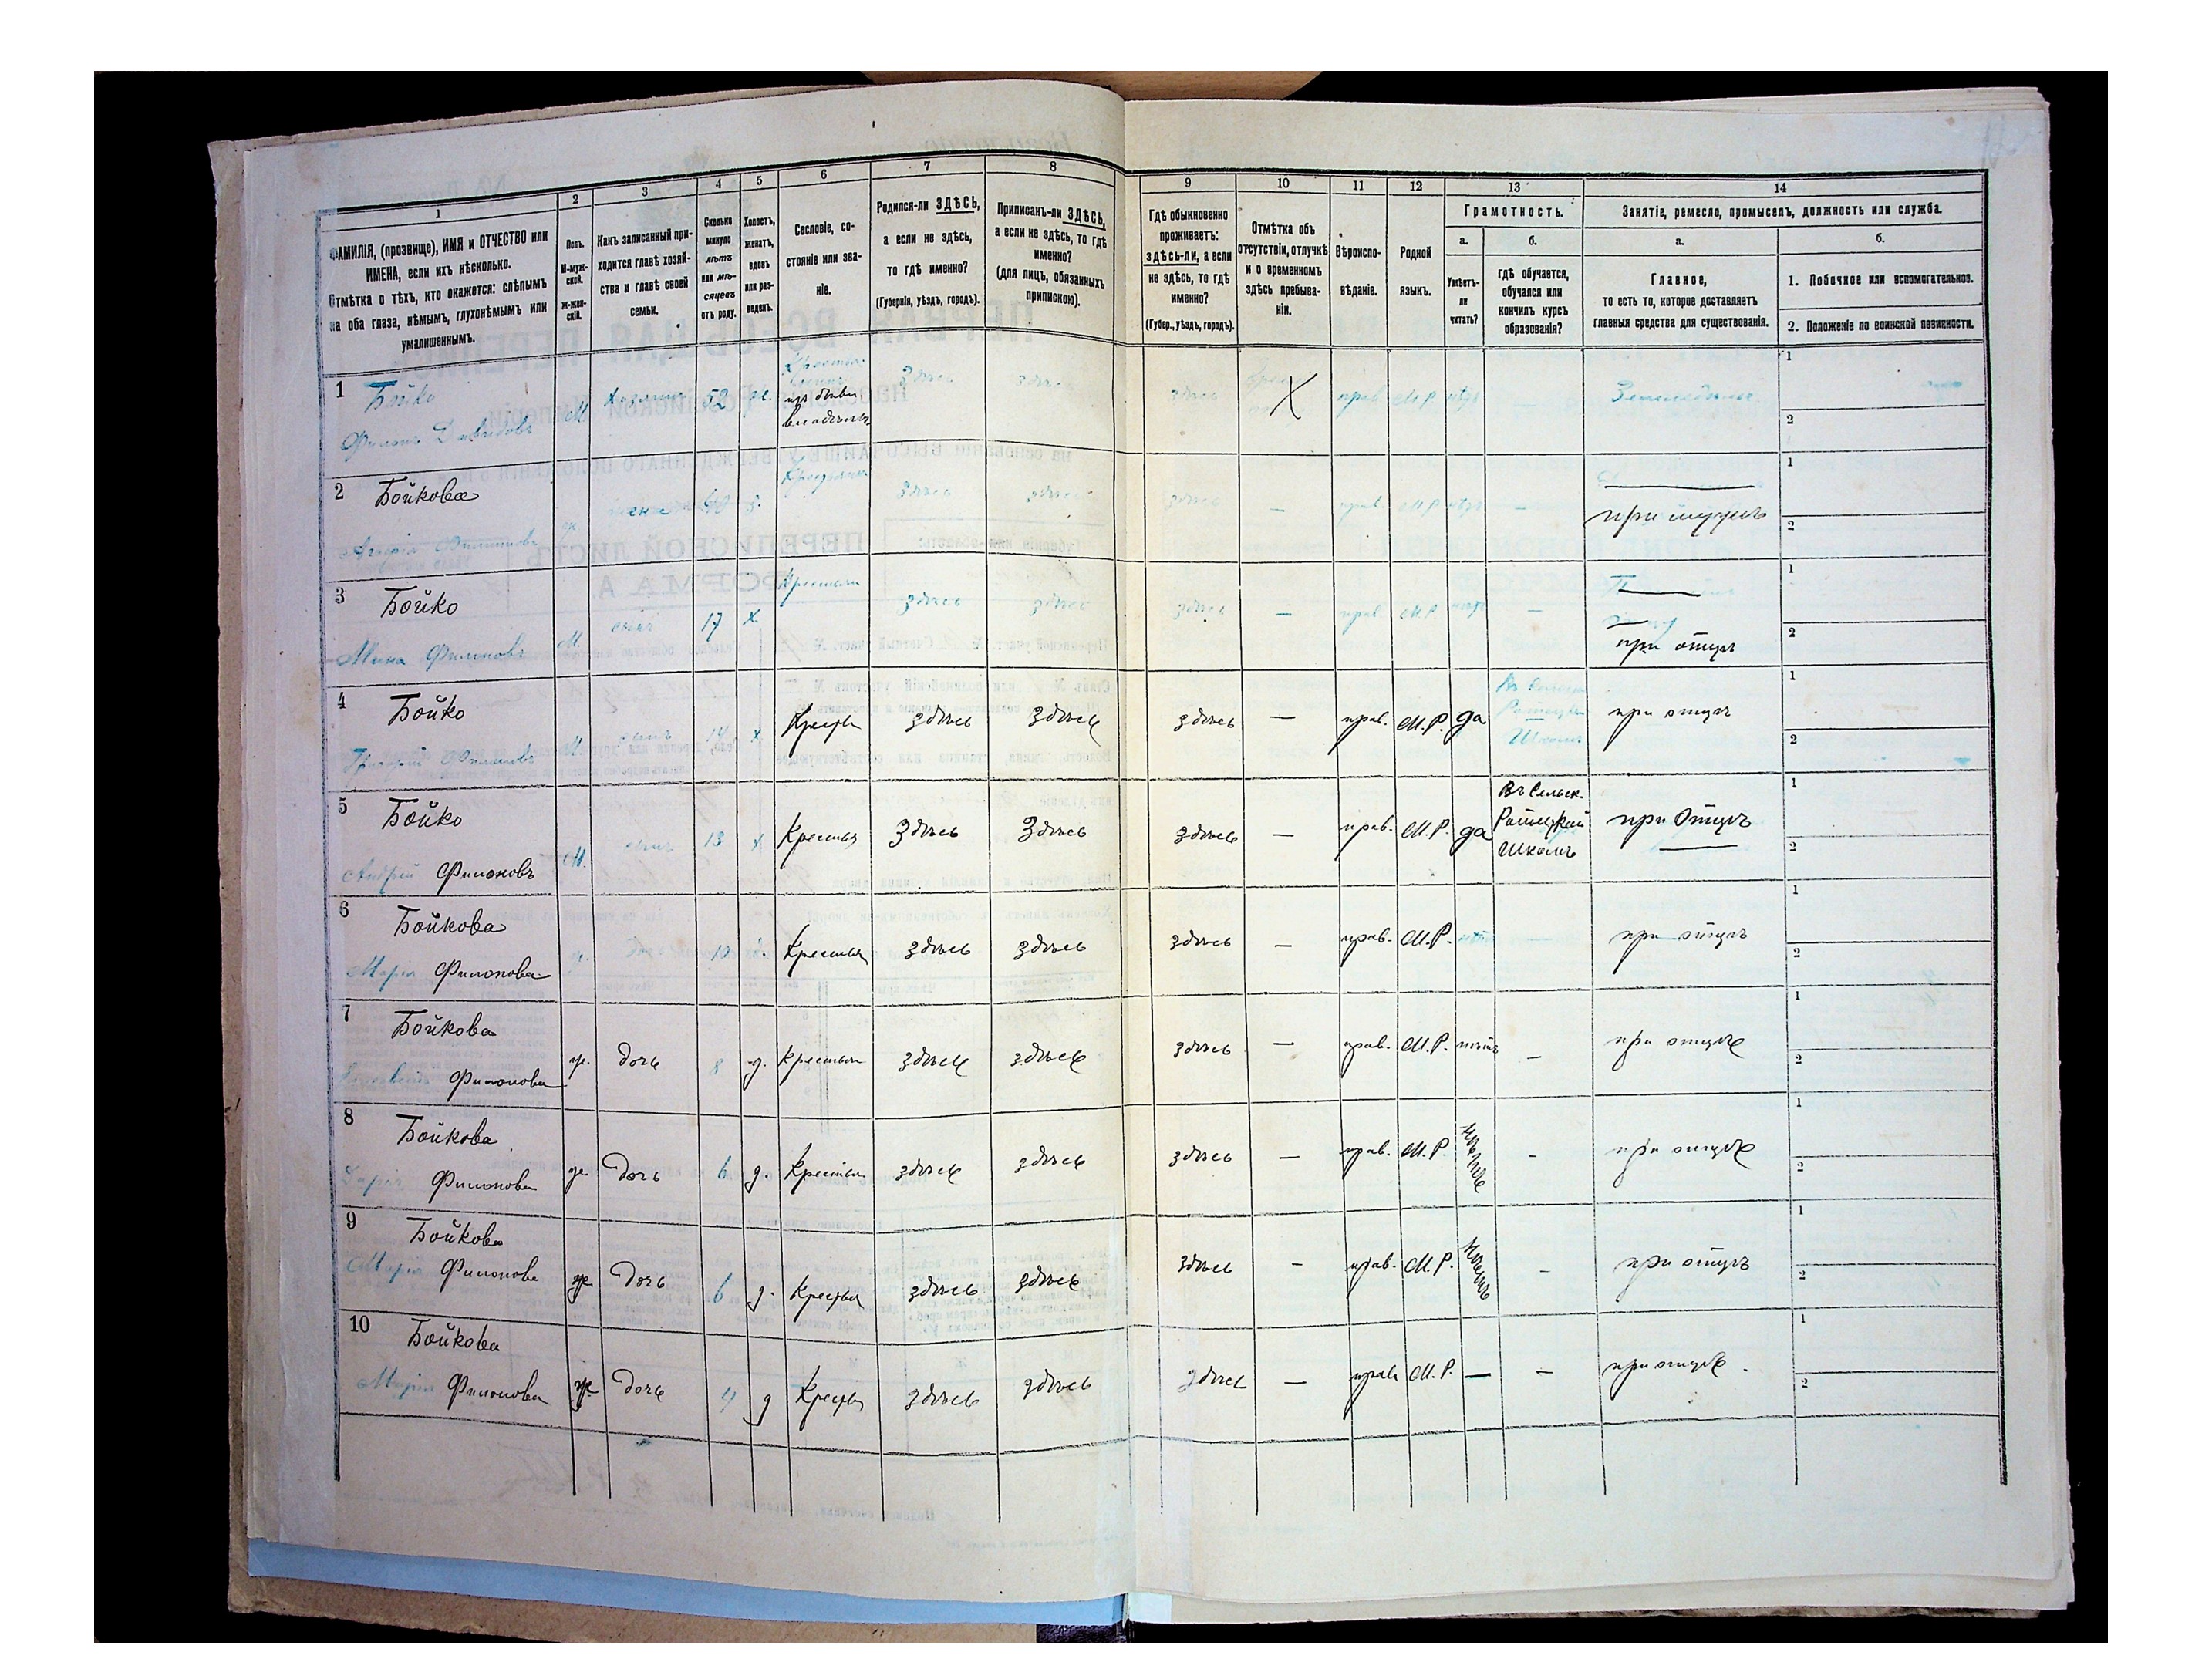 1 2 3 4 5 6 7 8 9 10 11 12 13 14
ФАМИЛІЯ, (прозвище), ИМЯ и ОТЧЕСТВО или
ИМЕНА, если ихъ нѣсколько.
Отмѣтка о тѣхъ, кто окажется: слѣпымъ
на оба глаза, нѣмымъ, глухонѣмымъ или
умалишеннымъ.
Полъ.
М-муж-
ской.
Ж-жен-
скій.
Какъ записанный при-
ходится главѣ хозяй-
ства и главѣ своей
семьи.
Сколько
минуло
лѣтъ
или мѣ-
сяцевъ
отъ роду.
Холостъ,
женатъ,
вдовъ
или раз-
веденъ.
Сословіе, со-
стояніе или зва-
ніе.
Родился-ли ЗДѢСЬ,
а если не здѣсь,
то гдѣ именно?
(Губернія, уѣздъ, городъ).
Приписанъ-ли ЗДѢСЬ,
а если не здѣсь, то гдѣ
именно?
(для лицъ, обязанныхъ
припискою).
Гдѣ обыкновенно
проживаетъ:
здѣсь-ли, а если
не здѣсь, то гдѣ
именно?
(Губер., уѣздъ, городъ).
Отмѣтка объ
отсутствіи, отлучкѣ
и о временномъ
здѣсь пребыва-
ніи.
Вѣроиспо-
вѣданіе.
Родной
языкъ.
Грамотность.
а.
Умѣетъ-
ли
читать?
б.
гдѣ обучается,
обучался или
кончилъ курсъ
образованія?
Занятіе, ремесло, промыселъ, должность или служба.
а.
Главное,
то есть то, которое доставляетъ
главныя средства для существованія.
б.
1. Побочное или вспомогательное.
2. Положеніе по воинской повинности.
1 Бойко М Хозяинъ 52 здѣсь здѣсь здѣсь прав М.Р. Земледѣлие 1
Филонъ Давидовъ 2
2 Бойкова жена здѣсь здѣсь здѣсь — прав М.Р. — 1
при мужѣ 2
3 Бойко сынъ 17 х. Крестьян здѣсь здѣсь здѣсь — прав М.Р. — 1
Мина Филоновъ М. при отцѣ 2
4 Бойко М. сынъ 14 х. Крестья здѣсь здѣсь здѣсь — прав. М.Р. да при отцѣ 1
Григорій Филоновъ 2
5 Бойко М. сынъ 13 х Крестья здѣсь здѣсь здѣсь — прав. М.Р. да Въ Сельск. при отцѣ 1
Андрій Филоновъ школѣ 2
6 Бойкова Крестья здѣсь здѣсь здѣсь — прав. М.Р. нѣтъ — при отцѣ 1
Марія Филонова 2
7 Бойкова ж. дочь 8 д. Крестьян здѣсь здѣсь здѣсь — прав. М.Р. нѣтъ — при отцѣ 1
Филонова 2
8 Бойкова ж. дочь 6 д. Крестьян здѣсь здѣсь здѣсь — прав. М.Р. - при отцѣ 1
Дарія Филонова 2
9 Бойкова ж. дочь 6 д. Крестья здѣсь здѣсь здѣсь - прав. М.Р. - при отцѣ 1
Марія Филонова 2
10 Бойкова ж. дочь 4 д Крестья здѣсь здѣсь здѣсь — прав М.Р. — — при отцѣ 1
Марія Филонова 2